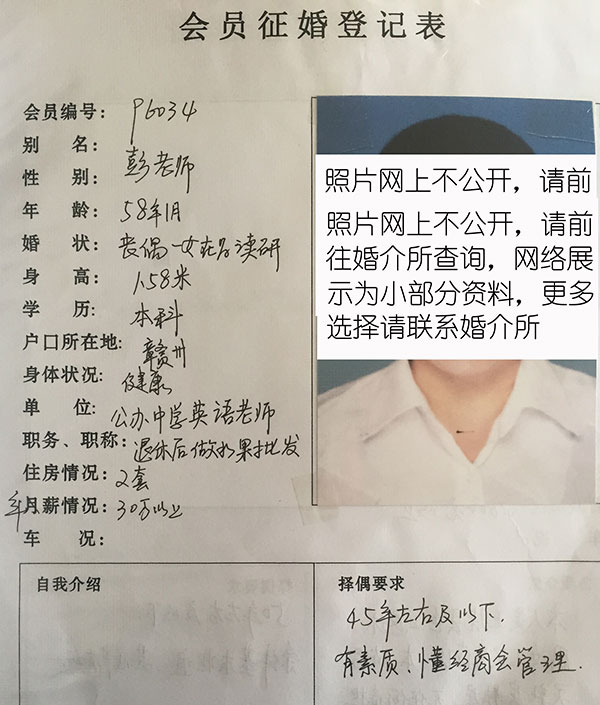 会员征婚登记表
会员编号: P6034
别 名: 彭老师
性 别:
年 龄: 58年1月
婚 状: 丧偶一女在读研
身 高: 1.58米
学 历: 本科
户口所在地: 赣州
身体状况: 健康
单 位: 公办中学英语老师
职务、职称: 退休后做水果批发
住房情况: 2套
年月薪情况: 30万以上
车 况:
照片网上不公开，请前
照片网上不公开，请前
往婚介所查询，网络展
示为小部分资料，更多
选择请联系婚介所
自我介绍
择偶要求
45年左右及以下.
有素质、懂经商会管理.